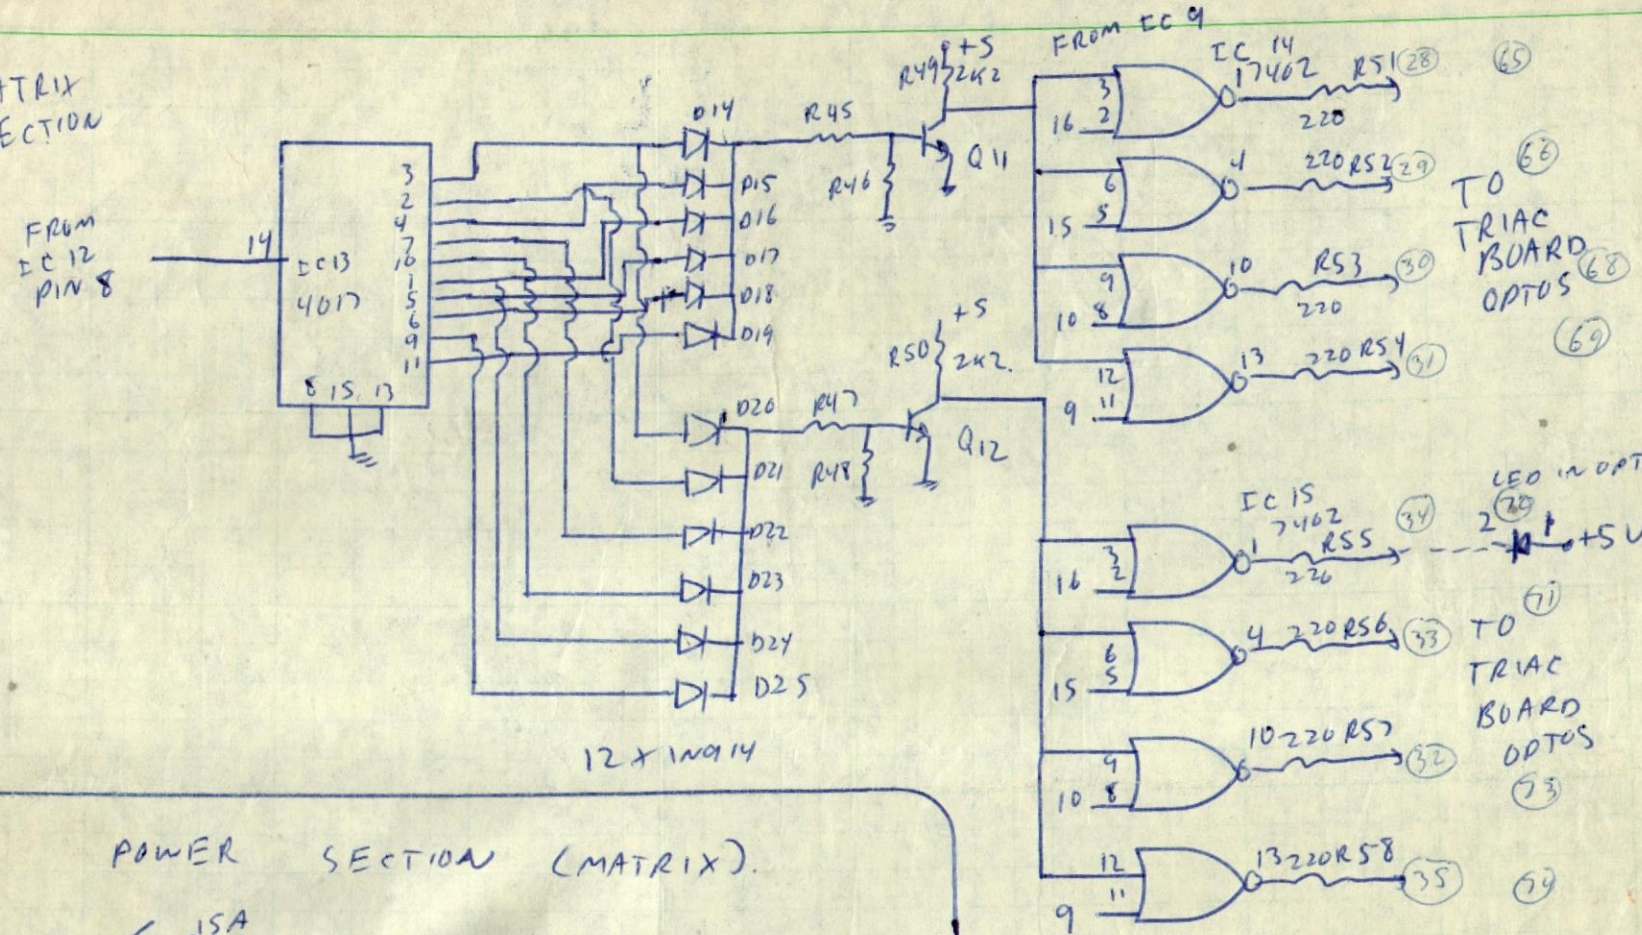 ATRIX
ECTION
FROM
IC12
PIN 8
14
IC13
4017
3
2
4
7
10
1
5
6
9
11
8 15 13
D14
D15
D16
D17
D18
D19
D20
D21
D22
D23
D24
D25
12 X 1N914
R45
R46
R49 2K2
+5
Q11
R47
R48
R50 2K2.
+5
Q12
FROM IC 9
IC 14
7402
3
16 2
1
R51
220
28
65
6
15 5
4
220 R52
29
66
9
10 8
10
R53
220
30
68
12
9 11
13
220 R54
31
69
TO
TRIAC
BOARD
OPTOS
IC 15
7402
3
16 2
1
R55
220
34
LED IN OPT
2
1
+5V
6
15 5
4
220 R56
33
71
9
10 8
10
220 R57
32
73
12
9 11
13
220 R58
35
TO
TRIAC
BOARD
OPTOS
POWER SECTION (MATRIX).
15A